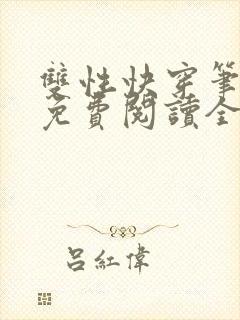 雙性快穿筆
免費閱讀全
呂紅偉